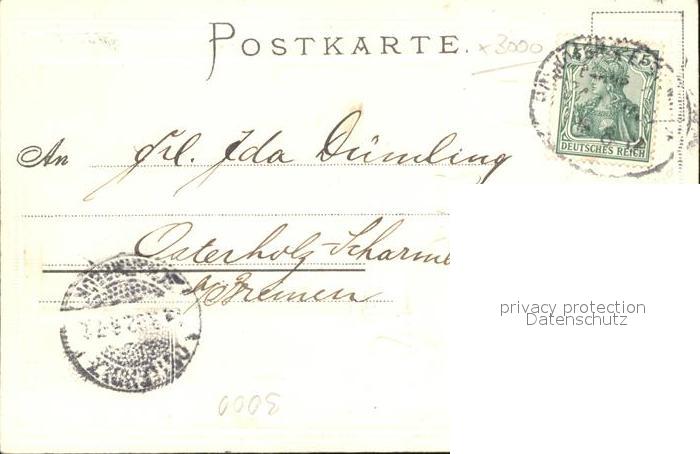 POSTKARTE.
x 3000
5
DEUTSCHES REICH
An Frl. Ida Dümling
Osterholz-Scharm
b/Bremen
privacy protection
Datenschutz
3000